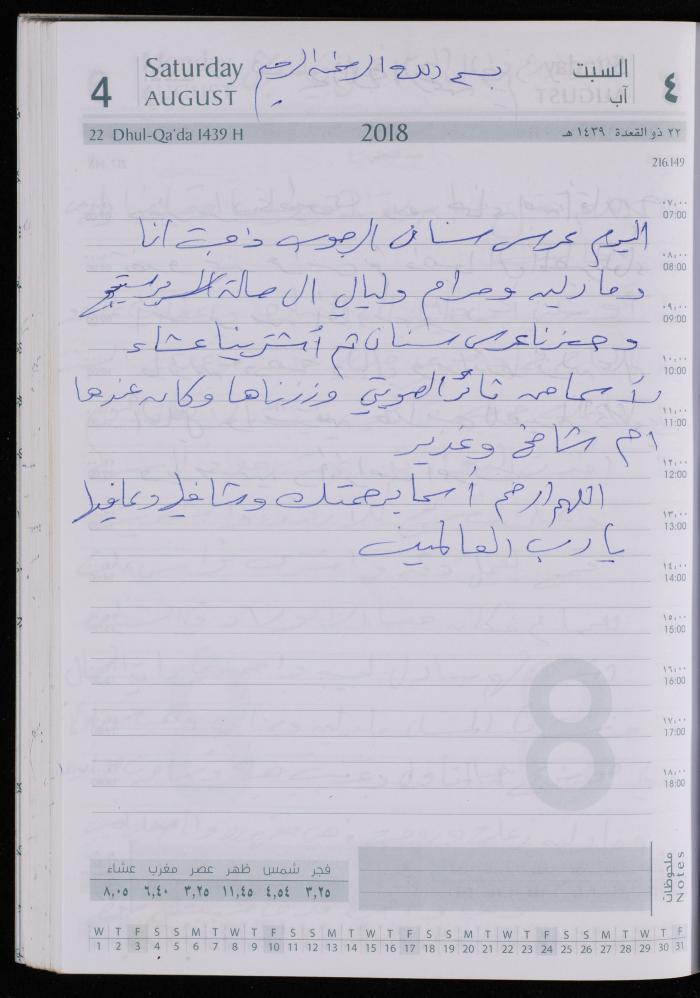 Saturday
بسم الله الرحمن الرحيم
السبت
4
AUGUST
آب
٤
22 Dhul-Qa'da 1439 H
2018
٢٢ ذو القعدة ١٤٣٩ هـ
216.149
٠٧,٠٠
07:00
اليوم عرس سنان الرجوب ذهبت أنا
٠٨,٠٠
08:00
ومارليه ومرام وليالي ال صالة
٠٩,٠٠
09:00
وحضرنا عرس سنان ثم أشترينا عشاء
١٠,٠٠
10:00
لأسما من ثائر الصويتي وزرناها وكان عندها
١١,٠٠
11:00
ام شامخ وغدير
١٢,٠٠
12:00
اللهم ارحم أسما برحمتك وشافيها وعافيها
١٣,٠٠
13:00
يا رب العالمين
١٤,٠٠
14:00
١٥,٠٠
15:00
١٦,٠٠
16:00
١٧,٠٠
17:00
8
١٨,٠٠
18:00
ملحوظات
Notes
فجر شمس ظهر عصر مغرب عشاء
٣,٢٥ ٤,٥٤ ١١,٤٥ ٣,٢٥ ٦,٤٠ ٨,٠٥
W T F S S M T W T F S S M T W T F S S M T W T F S S M T W T F
1 2 3 4 5 6 7 8 9 10 11 12 13 14 15 16 17 18 19 20 21 22 23 24 25 26 27 28 29 30 31